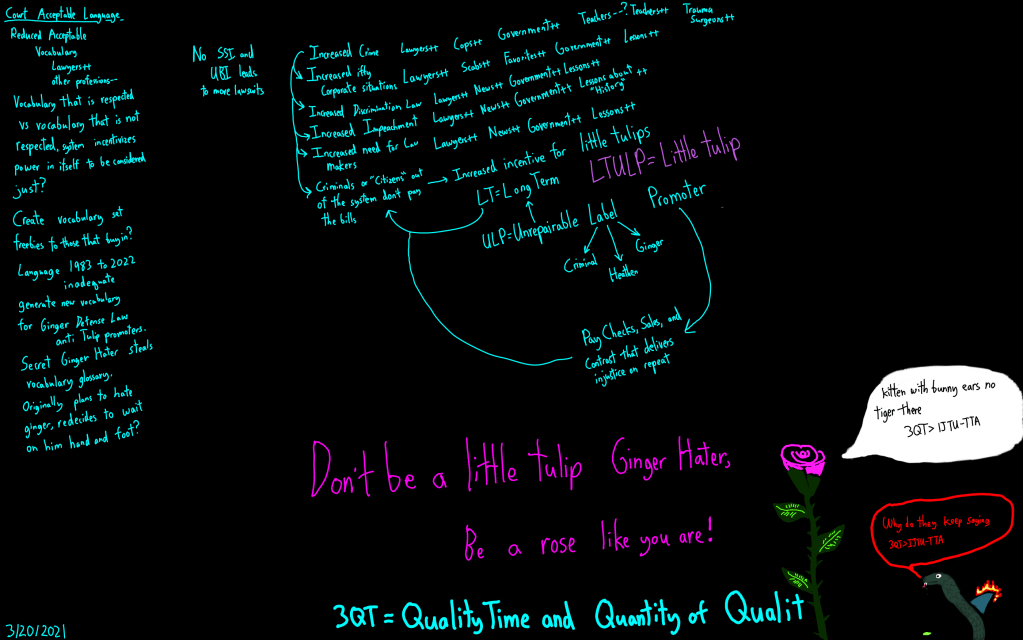 Court Acceptable Language
Reduced Acceptable
Vocabulary
Lawyers++
other professions--
Vocabulary that is respected
vs vocabulary that is not
respected, system incentivizes
power in itself to be considered
just?
Create vocabulary set
freebies to those that buy in?
Language 1983 to 2022
inadequate
generate new vocabulary
for Ginger Defense Law
anti Tulip promoters.
Secret Ginger Hater steals
vocabulary glossary.
Originally plans to hate
ginger, redecides to wait
on him hand and foot?
3/20/2021
No SSI and
UBI leads
to more lawsuits
Increased Crime Lawyers++ Cops++ Government++ Teachers--? Teachers++ Trauma
Surgeons++
Increased iffy
Corporate situations Lawyers++ Scabs++ Favorites++ Government++ Lessons++
Increased Discrimination Law Lawyers++ News++ Government++ Lessons++
Increased Impeachment Lawyers++ News++ Government++ Lessons about ++
"History"
Increased need for Law Lawyers++ News++ Government++ Lessons++
makers
Criminals or "Citizens" out
of the system don't pay
the bills
Increased incentive for little tulips
LT=Long Term
LTULP= Little tulip
ULP=Unrepairable Label Promoter
Criminal
Heathen
Ginger
Pay Checks, Sales, and
Contrast that delivers
injustice on repeat
Don't be a little tulip Ginger Hater,
Be a rose like you are!
3QT = Quality Time and Quantity of Qualit
kitten with bunny ears no
tiger there
3QT> IJTU-TTA
Why do they keep saying
3QT>IJTU-TTA